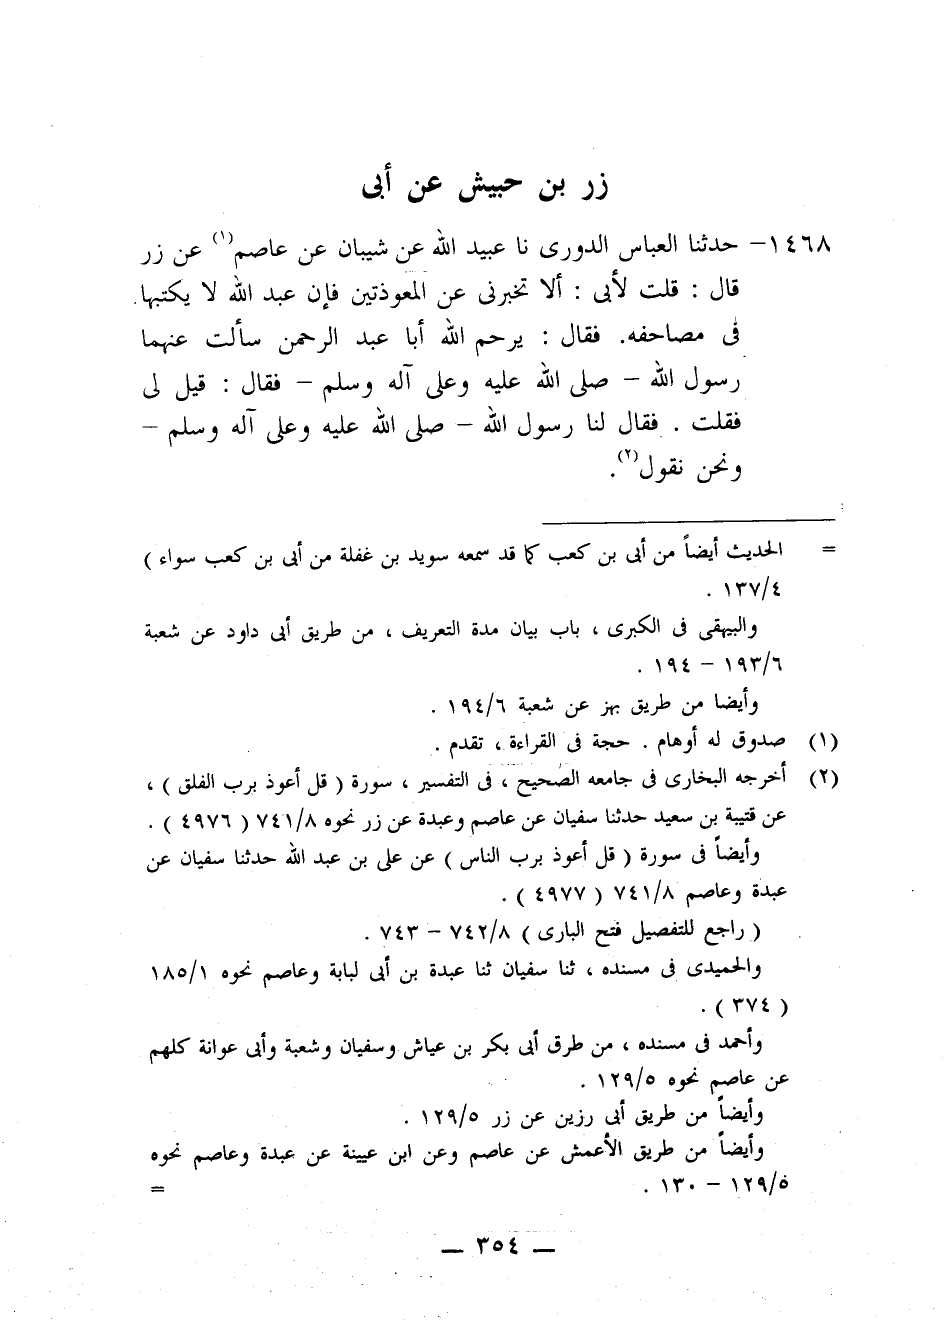 زر بن حبيش عن أبى
١٤٦٨- حدثنا العباس الدورى نا عبيد الله عن شيبان عن عاصم(١) عن زر
قال : قلت لأبى : ألا تخبرنى عن المعوذتين فإن عبد الله لا يكتبها
فى مصاحفه. فقال : يرحم الله أبا عبد الرحمن سألت عنهما
رسول الله - صلى الله عليه وعلى آله وسلم - فقال : قيل لى
فقلت . فقال لنا رسول الله - صلى الله عليه وعلى آله وسلم -
ونحن نقول(٢).
= الحديث أيضاً من أبى بن كعب كما قد سمعه سويد بن غفلة من أبى بن كعب سواء )
١٣٧/٤ .
والبيهقى فى الكبرى ، باب بيان مدة التعريف ، من طريق أبى داود عن شعبة
١٩٣/٦ - ١٩٤ .
وأيضا من طريق بهز عن شعبة ١٩٤/٦ .
(١) صدوق له أوهام . حجة فى القراءة ، تقدم .
(٢) أخرجه البخارى فى جامعه الصحيح ، فى التفسير ، سورة ( قل أعوذ برب الفلق ) ،
عن قتيبة بن سعيد حدثنا سفيان عن عاصم وعبدة عن زر نحوه ٧٤١/٨ ( ٤٩٧٦ ) .
وأيضاً فى سورة ( قل أعوذ برب الناس ) عن على بن عبد الله حدثنا سفيان عن
عبدة وعاصم ٧٤١/٨ ( ٤٩٧٧ ) .
( راجع للتفصيل فتح البارى ) ٧٤٢/٨ - ٧٤٣ .
والحميدى فى مسنده ، ثنا سفيان ثنا عبدة بن أبى لبابة وعاصم نحوه ١٨٥/١
( ٣٧٤ ) .
وأحمد فى مسنده ، من طرق أبى بكر بن عياش وسفيان وشعبة وأبى عوانة كلهم
عن عاصم نحوه ١٢٩/٥ .
وأيضاً من طريق أبى رزين عن زر ١٢٩/٥ .
وأيضاً من طريق الأعمش عن عاصم وعن ابن عيينة عن عبدة وعاصم نحوه
١٢٩/٥ - ١٣٠ . =
— ٣٥٤ —